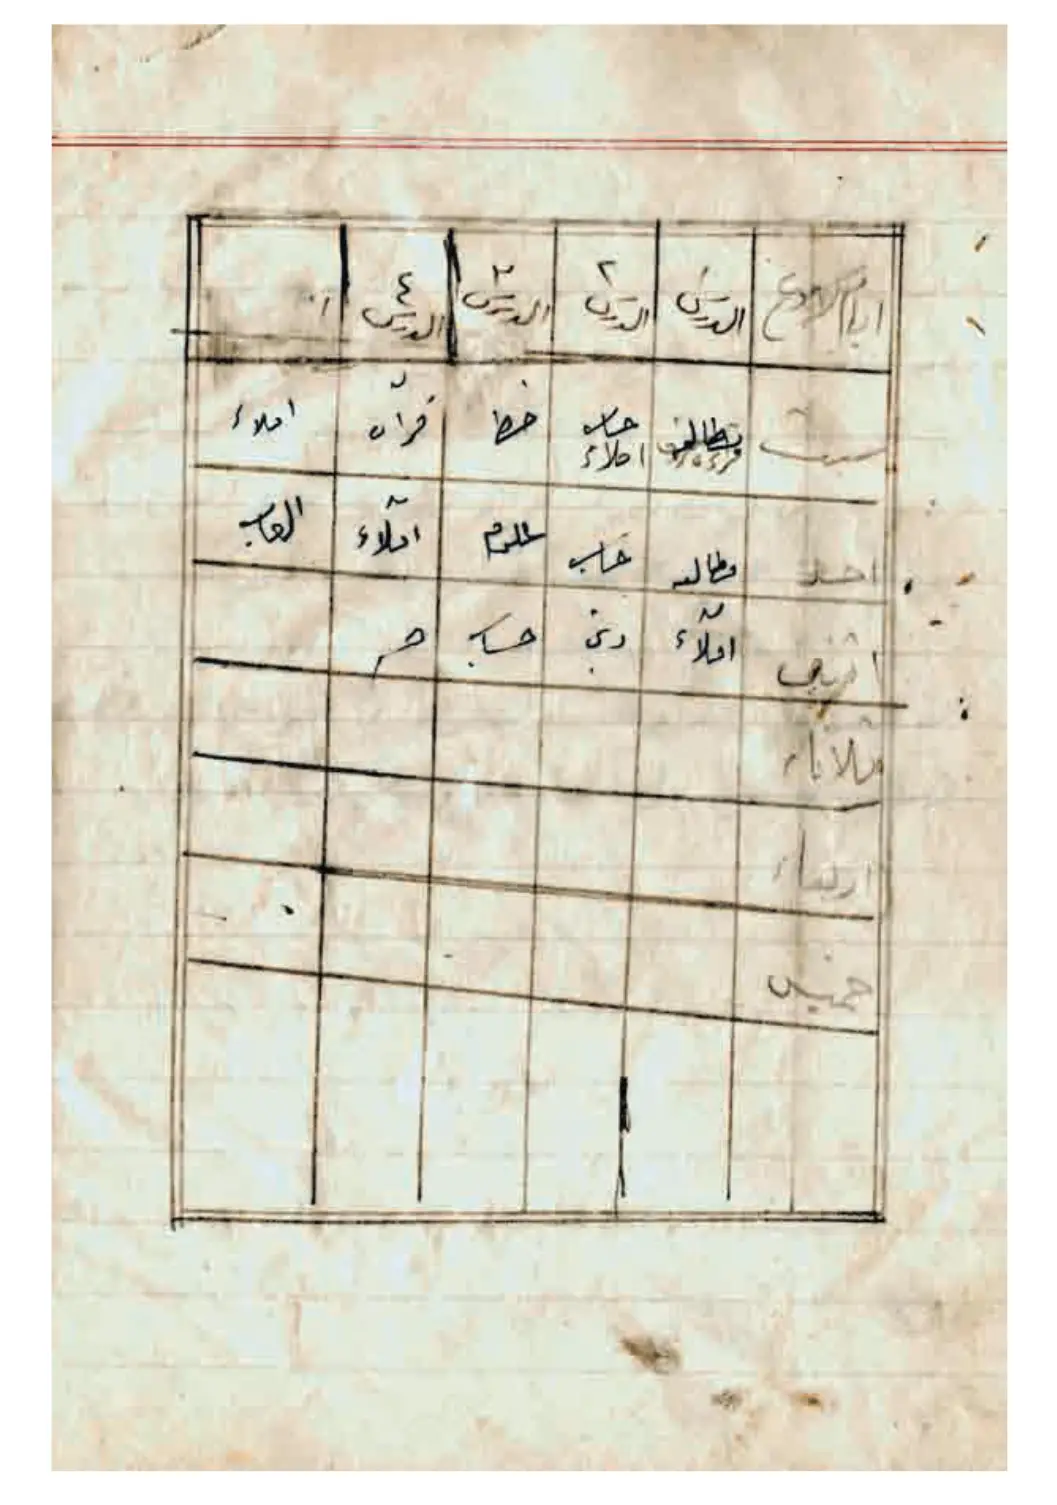 ايام الاسبوع الدرس ١ الدرس ٢ الدرس ٣ الدرس ٤
سبت مطالعه حساب املاء خط قرآن املاء
احد مطالعه حساب علوم املآء العاب
اثنين املآء دين حساب
ثلاثاء
اربعاء
خميس